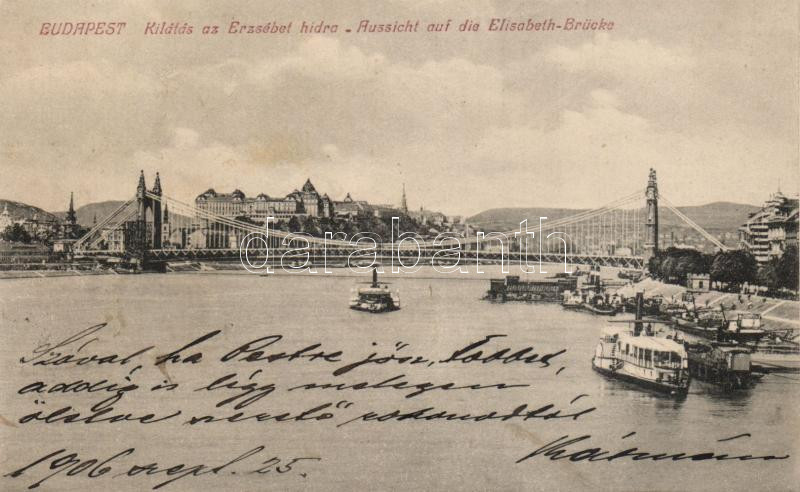 BUDAPEST Kilátás az Erzsébet hidra - Aussicht auf die Elisabeth-Brücke
darabanth.com
Szóval, ha Pestre jön, többet,
addig is légy melegen
ölelve szerető rokonodtól
1906 szept. 25. Kálmán